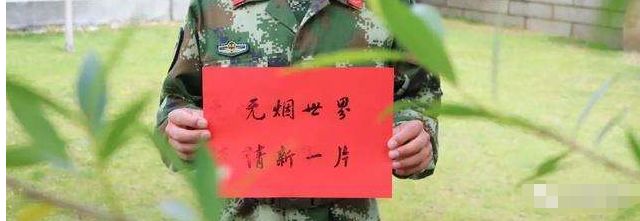 无烟世界
清新一片